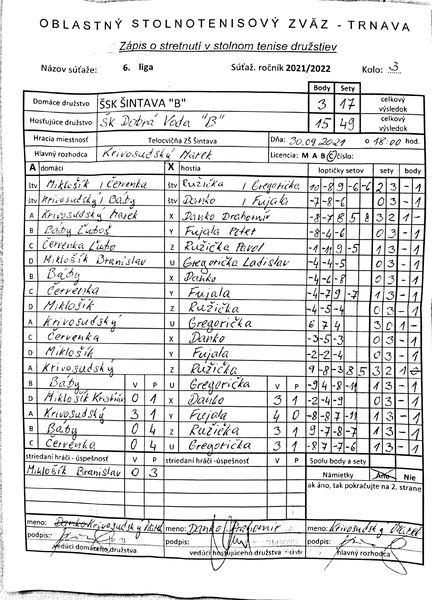 OBLASTNÝ STOLNOTENISOVÝ ZVÄZ - TRNAVA
Zápis o stretnutí v stolnom tenise družstiev
Názov súťaže: 6. liga Súťaž. ročník 2021/2022 Kolo: 3
Body Sety
Domáce družstvo ŠSK ŠINTAVA "B" 3 17 celkový výsledok
Hosťujúce družstvo ŠK Dobrá Voda "B" 15 49 celkový výsledok
Hracia miestnosť Telocvičňa ZŠ Šintava Dňa: 30.09.2021 o 18:00 hod.
Hlavný rozhodca Krivosudský Marek Licencia: M A B C číslo:
A domáci X hostia loptičky setov sety body
štv Miklošík / Červenka štv Ružička / Gregorička 10 -8 9 -6 -6 2 3 -1
štv Krivosudský / Baby štv Danko / Fujala -7 -8 -6 0 3 -1
A Krivosudský Marek X Danko Drahomír -8 -7 8 5 8 3 2 1 -
B Baby Ľuboš Y Fujala Peter -8 -4 -6 0 3 -1
C Červenka Ľubo Z Ružička Pavol -1 -11 9 -5 1 3 -1
D Miklošík Branislav U Gregorička Ladislav -4 -4 -5 0 3 -1
B Baby X Danko -4 -6 -8 0 3 -1
C Červenka Y Fujala -4 -7 9 -7 1 3 -1
D Miklošík Z Ružička -4 -5 -4 0 3 -1
A Krivosudský U Gregorička 6 7 4 3 0 1 -
C Červenka X Danko -3 -5 -3 0 3 -1
D Miklošík Y Fujala -2 -2 -4 0 3 -1
A Krivosudský Z Ružička 9 -8 -3 8 5 3 2 1 -
B Baby V P U Gregorička V P -9 4 -8 -11 1 3 -1
D Miklošík Kristián 0 1 X Danko 3 1 -2 -4 -9 0 3 -1
A Krivosudský 3 1 Y Fujala 4 0 -8 -8 7 -11 1 3 -1
B Baby 0 4 Z Ružička 3 1 9 -7 -8 -7 1 3 -1
C Červenka 0 4 U Gregorička 3 1 -8 7 -7 -6 1 3 -1
striedaní hráči - úspešnosť V P striedaní hráči - úspešnosť V P Spolu body a sety
Miklošík Branislav 0 3 Námietky Áno - Nie
ak áno, tak pokračujte na 2. strane
meno: Krivosudský meno: Danko Drahomír meno: Krivosudský Marek
podpis: podpis: podpis:
vedúci domáceho družstva vedúci hosťujúceho družstva hlavný rozhodca